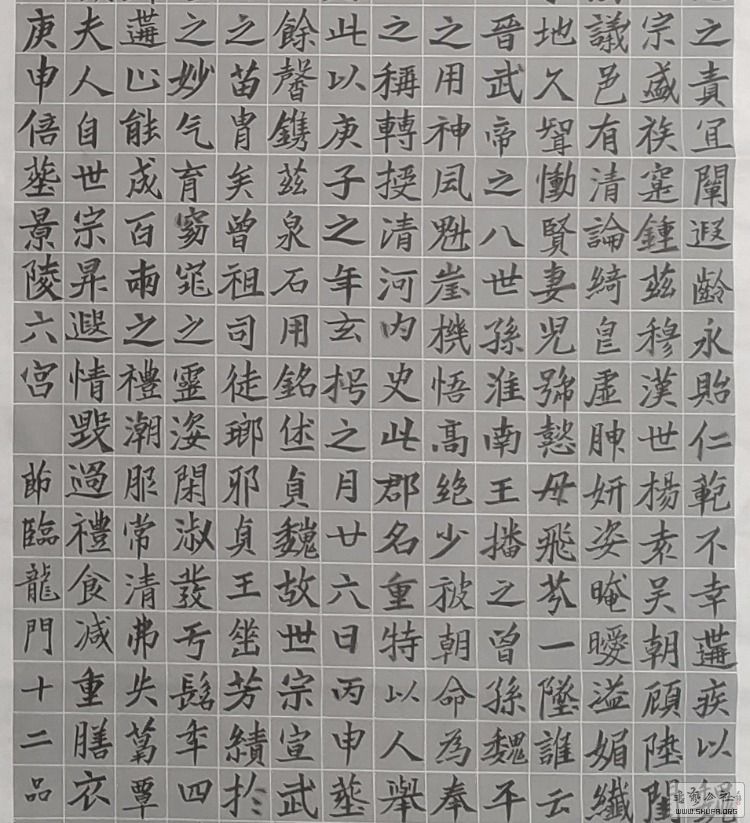 之責宜闡遐齡永貽仁範不幸遘疾以
宗盛族寔鍾茲穆漢世楊素吳朝顧陸閨
議邑有清論綺虛胂妍姿晻曖溢媚纖
地久聲慟賢妻兒號懿母飛芬一墜誰云
晉武帝之八世孫淮南王播之曾孫魏平
之用神風魁崖機悟高絶少被朝命為奉
之稱轉授清河內史此郡名重特以人舉
此以庚子之年玄枵之月廿六日丙申塟
餘馨鐫茲泉石用銘貞魏故世宗宣武
之苗胄矣曾祖司徒瑯邪貞王垂芳績於
之妙气育窈窕之靈姿閑淑發于髫年四
遘止能成百兩之禮潮服常清弗失葛覃
夫人自世宗昇遐情毀過禮食減重膳衣
庚申倍塟景陵六宮
節臨龍門十二品
WWW.SHUFA.ORG